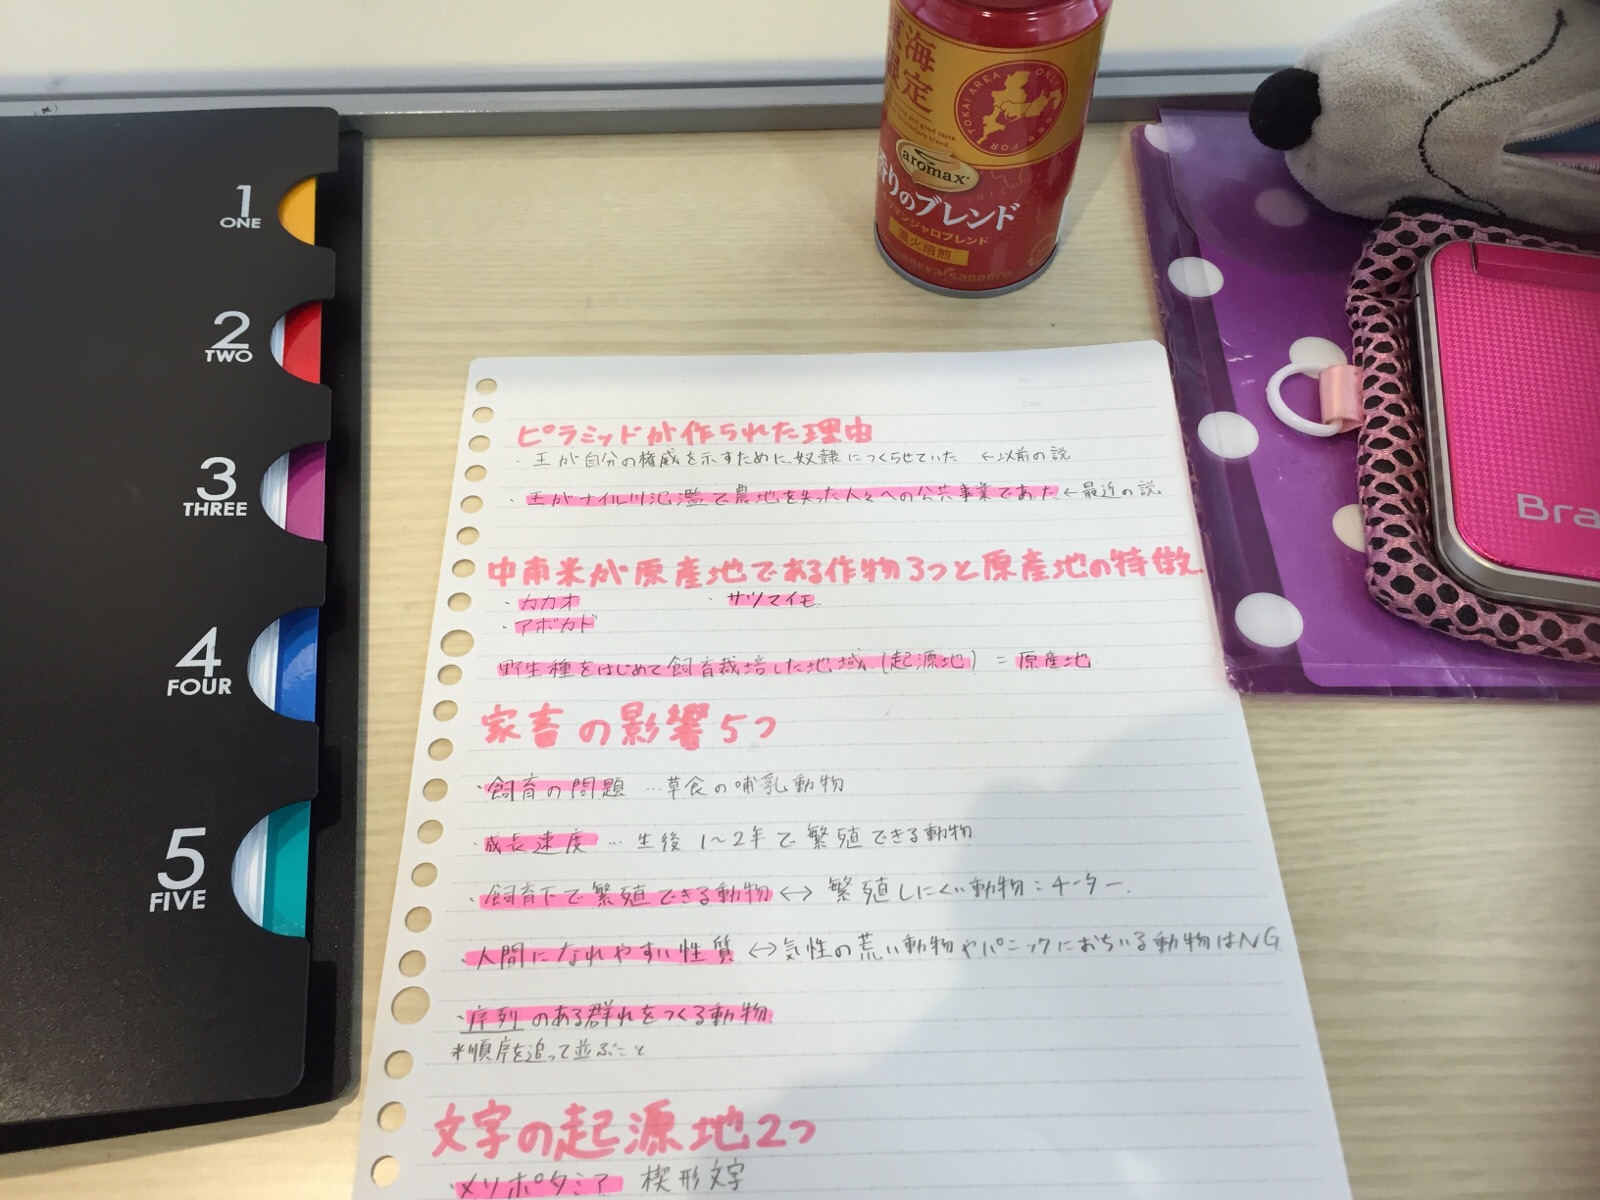 1
ONE
2
TWO
3
THREE
4
FOUR
5
FIVE
東海
限定
TOKAI AREA ONLY
aromax
香りのブレンド
キリマンジャロブレンド
直火焙煎
pokka sapporo
Bra
No.
Date
ピラミッドが作られた理由
・王が自分の権威を示すために、奴隷につくらせていた ←以前の説
・王がナイル川氾濫で農地を失った人々への公共事業であった←最近の説
中南米が原産地である作物3つと原産地の特徴.
・カカオ ・サツマイモ.
・アボカド
野生種をはじめて飼育栽培した地域(起源地) = 原産地
家畜の影響5つ
・飼育の問題 …草食の哺乳動物
・成長速度 … 生後 1〜2年で繁殖できる動物
・飼育下で繁殖できる動物 ↔ 繁殖しにくい動物:チーター.
・人間になれやすい性質 ↔気性の荒い動物やパニックにおちいる動物はNG
・序列のある群れをつくる動物
*順序を追って並ぶこと
文字の起源地2つ
・メソポタミア 楔形文字